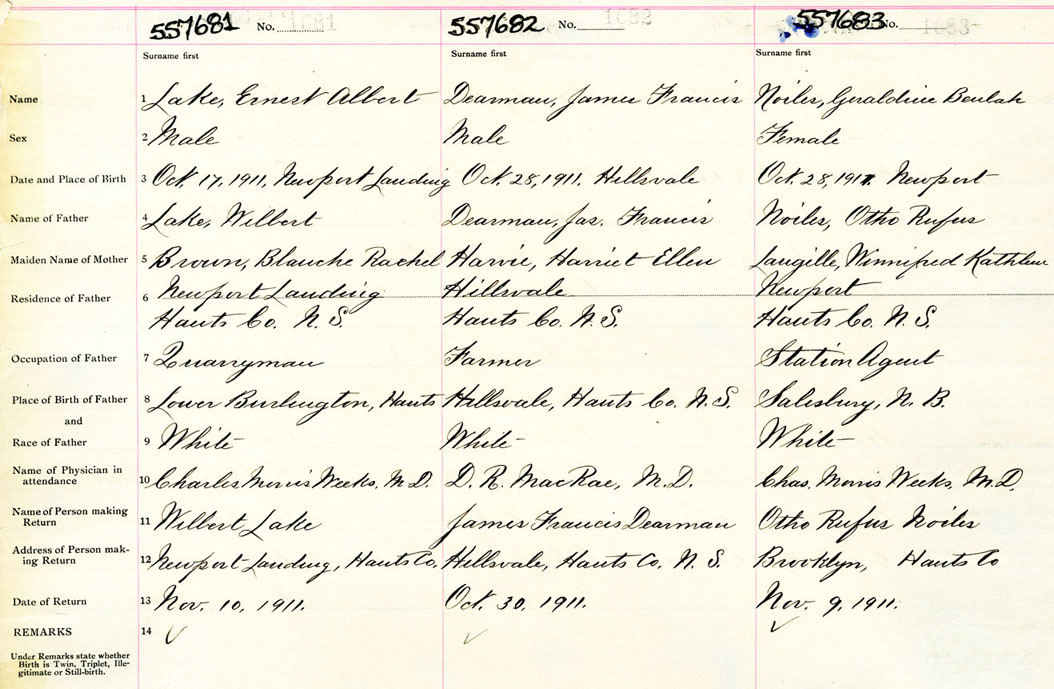 557681 No. 1681 557682 No. 1682 557683 No. 1683
Surname first Surname first Surname first
Name 1 Lake, Ernest Albert Dearman, James Francis Noiles, Geraldine Beulah
Sex 2 Male Male Female
Date and Place of Birth 3 Oct. 17, 1911, Newport Landing Oct. 28, 1911. Hillsvale Oct. 28, 1911. Newport
Name of Father 4 Lake, Wilbert Dearman, Jas. Francis Noiles, Otho Rufus
Maiden Name of Mother 5 Brown, Blanche Rachel Harvie, Harriet Ellen Langille, Winnifred Kathleen
Residence of Father 6 Newport Landing Hillsvale Newport
Hants Co. N.S. Hants Co. N.S. Hants Co. N.S.
Occupation of Father 7 Quarryman Farmer Station Agent
Place of Birth of Father 8 Lower Burlington, Hants Hillsvale, Hants Co. N.S. Salisbury, N.B.
and
Race of Father 9 White White White
Name of Physician in
attendance 10 Charles Morris Weeks, M.D. D. R. MacRae, M.D. Chas. Morris Weeks, M.D.
Name of Person making
Return 11 Wilbert Lake James Francis Dearman Otho Rufus Noiles
Address of Person mak-
ing Return 12 Newport Landing, Hants Co, Hillsvale, Hants Co. N.S. Brooklyn, Hants Co
Date of Return 13 Nov. 10, 1911. Oct. 30, 1911. Nov. 9, 1911.
REMARKS 14 ✓ ✓ ✓
Under Remarks state whether
Birth is Twin, Triplet, Ille-
gitimate or Still-birth.